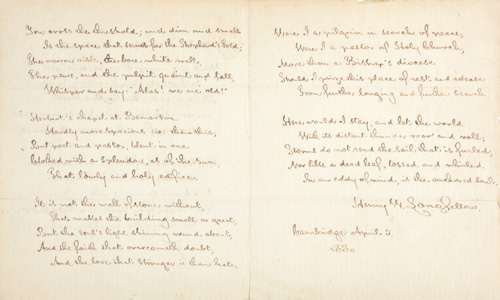 You cross the threshold; and dim and small
Is the space that serves for the Shepherd's Fold;
The narrow aisle, the bare, white wall,
The pews, and the pulpit quaint and tall,
Whisper and say: "Alas! we are old!"
Herbert's chapel at Bemerton
Hardly more spacious is than this;
But poet and pastor, blent in one,
Clothed with a splendor, as of the sun,
That lowly and holy edifice.
It is not the wall of stone without,
That makes the building small or great,
But the soul's light shining round about,
And the faith that overcometh doubt,
And the love that stronger is than hate.
Were I a pilgrim in search of peace,
Were I a pastor of Holy Church,
More than a Bishop's diocese
Should I prize this place of rest and release
From further longing and further search.
Here would I stay, and let the world
With its distant thunder roar and roll;
Storms do not rend the sail that is furled,
Nor like a dead leaf, tossed and whirled
In an eddy of wind, is the anchored soul.
Henry W. Longfellow
Cambridge April 3